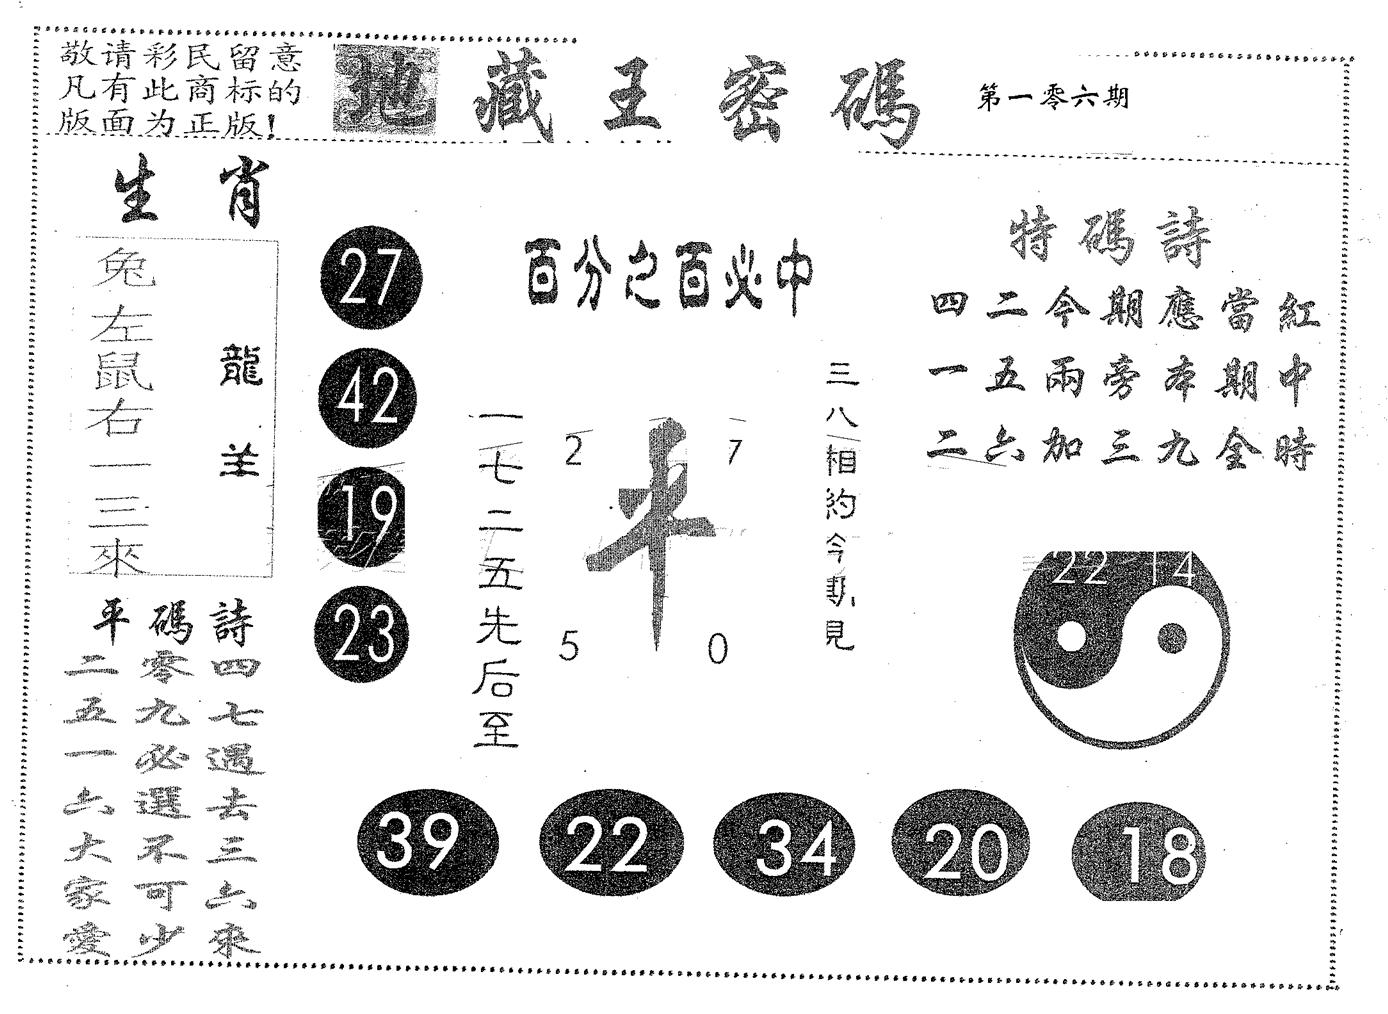 敬请彩民留意
凡有此商标的
版面为正版!
地藏王密碼
第一零六期
生肖
兔左鼠右一三來
龍羊
27
42
19
23
百分之百必中
一七二五先后至
2 7
5 0
三八相約今期見
特碼詩
四二今期應當紅
一五兩旁本期中
二六加三九全時
22 14
平碼詩
四七遇去三六來
零九必選不可少
二五一六大家愛
39 22 34 20 18